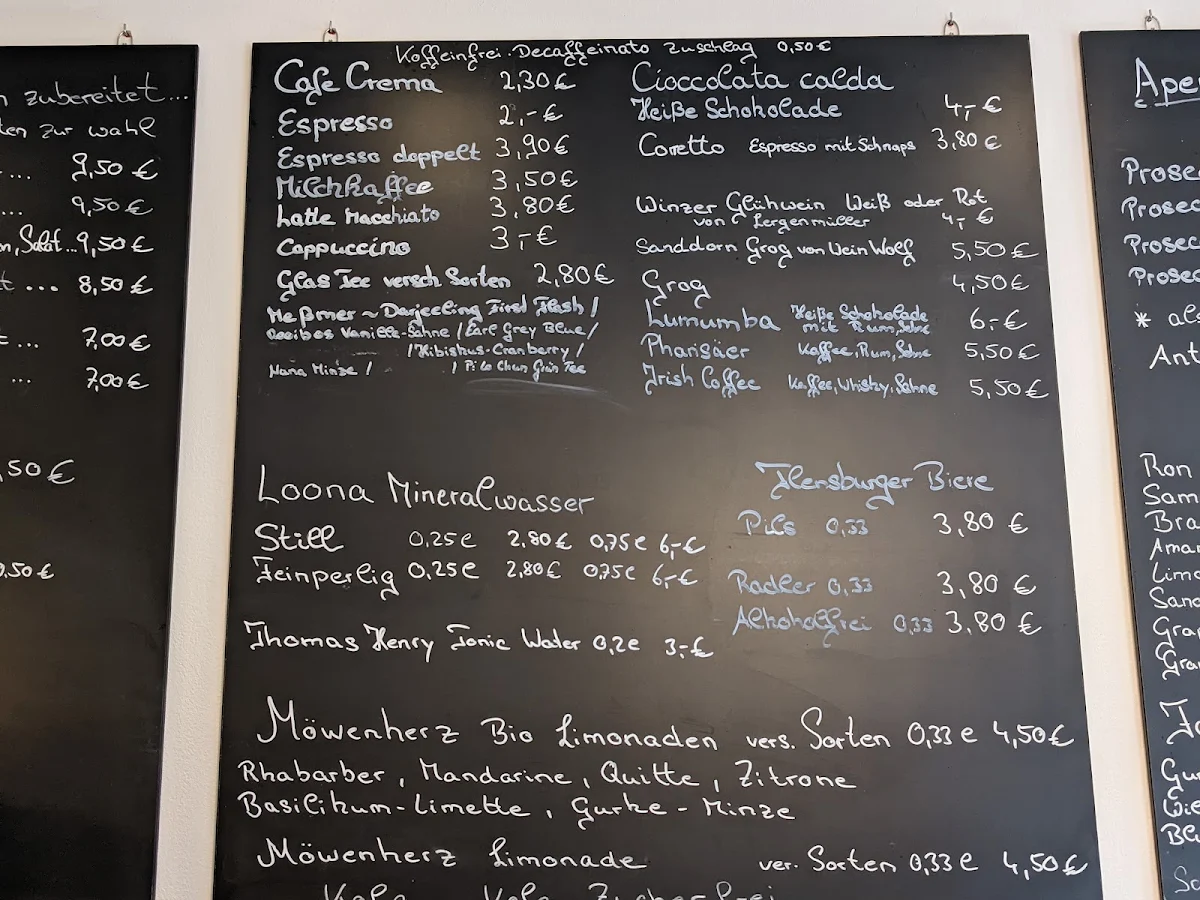 zubereitet...
zur wahl
... 9,50 €
... 9,50 €
Salat...9,50 €
... 8,50 €
... 7,00 €
... 7,00 €
,50 €
,50 €
Koffeinfrei. Decaffeinato Zuschlag 0,50 €
Cafe Crema 2,30 €
Espresso 2,- €
Espresso doppelt 3,90 €
Milchkaffee 3,50 €
Latte Macchiato 3,80 €
Cappuccino 3,- €
Glas Tee versch Sorten 2,80 €
Meßmer ~ Darjeeling First Flush /
Rooibos Vanille-Sahne / Earl Grey Blue /
/ Hibiskus-Cranberry /
Nana Minze / / Pi Lo Chun Grün Tee
Cioccolata calda
Heiße Schokolade 4,- €
Corretto Espresso mit Schnaps 3,80 €
Winzer Glühwein Weiß oder Rot
von Lergenmüller 4,- €
Sanddorn Grog von Wein Wolf 5,50 €
Grog 4,50 €
Lumumba Heiße Schokolade mit Rum, Sahne 6,- €
Pharisäer Kaffee, Rum, Sahne 5,50 €
Irish Coffee Kaffee, Whisky, Sahne 5,50 €
Loona Mineralwasser
Still 0,25 l 2,80 € 0,75 l 6,- €
Feinperlig 0,25 l 2,80 € 0,75 l 6,- €
Thomas Henry Tonic Water 0,2 l 3,- €
Flensburger Biere
Pils 0,33 3,80 €
Radler 0,33 3,80 €
Alkoholfrei 0,33 3,80 €
Möwenherz Bio Limonaden vers. Sorten 0,33 l 4,50 €
Rhabarber, Mandarine, Quitte, Zitrone
Basilikum-Limette, Gurke-Minze
Möwenherz Limonade ver. Sorten 0,33 l 4,50 €
Kola Kola Zuckerfrei
Ape
Prosec
Prosec
Prosec
Prosec
* als
Ant
Ron
Sam
Bra
Amar
Limo
Sand
Gra
Gra
Gu